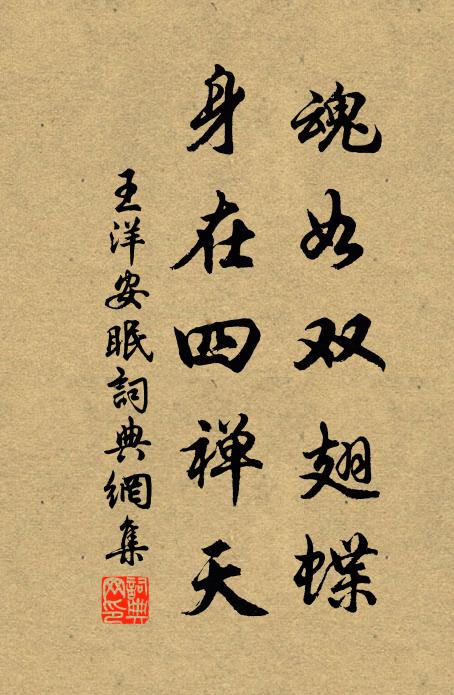 魂如双翅蝶
身在四禅天
王洋安眠詞典網集
詞典
网印